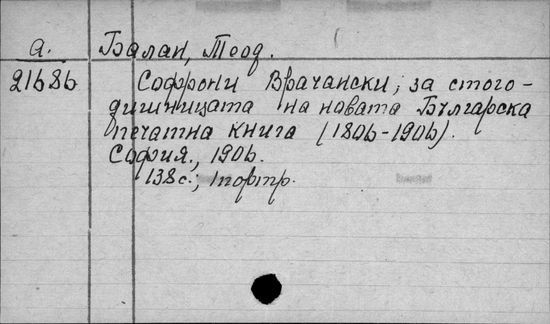 а. Балан, Теод.
21686 Софрони Врачански, за стого-
дишницата на новата Бългaрска
печатна книга (1806-1906).
София., 1906.
138с., 1портр.